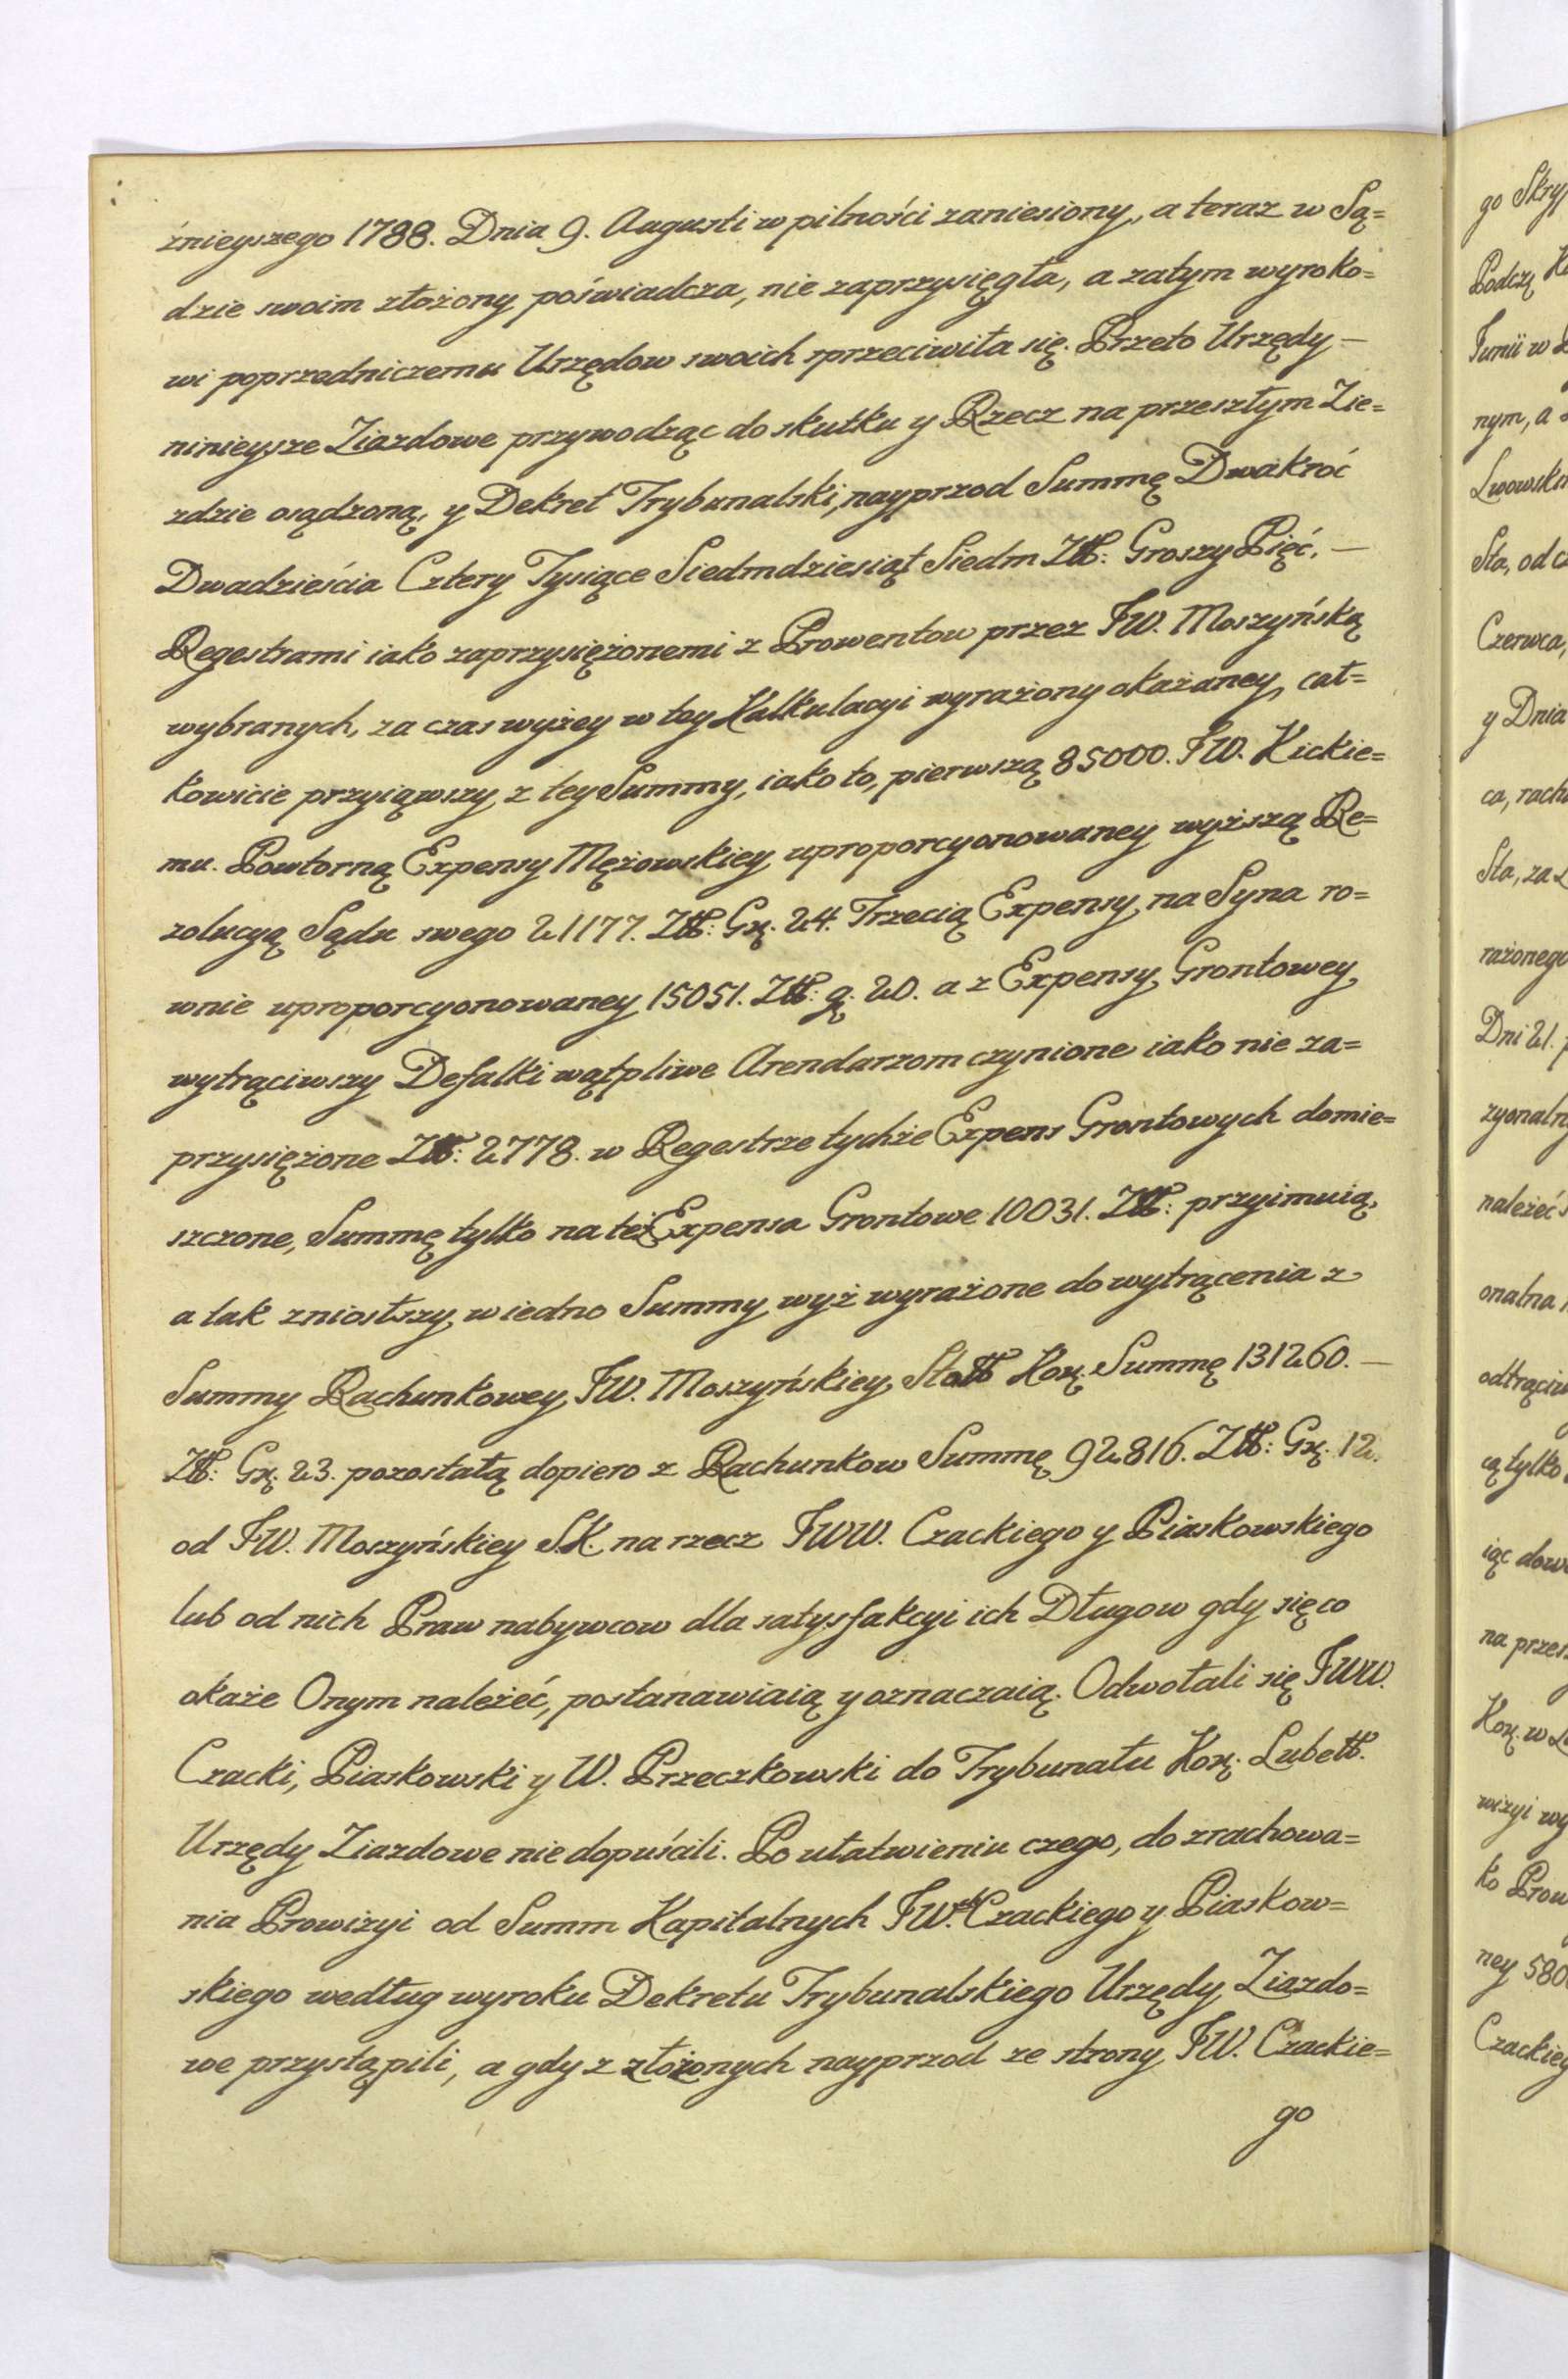 żnieyszego 1788. Dnia 9. Augusti w pilności zaniesiony, a teraz w Są=
dzie swoim złożony poświadcza, nie zaprzysięgła, a zatym wyroko=
wi poprzedniczemu Urzędow swoich sprzeciwiła się. Przeto Urzędy —
ninieysze Ziazdowe przywodząc do skutku y Rzecz na przeszłym Zie=
zdzie osądzoną, y Dekret Trybunalski, nayprzod Summę Dwakroć
Dwadzieścia Cztery Tysiące Siedmdziesiąt Siedm Złł: Groszy Pięć, —
Regestrami iako zaprzysiężonemi z Prowentow przez JW. Moszyńską
wybranych, za czas wyżey w tey Kalkulacyi wyrażony okazaney, cał=
kowicie przyiąwszy, z tey Summy, iako to, pierwszą 85000. JW. Kickie=
mu. Powtorną Expensy Mężowskiey uproporcyonowaney wyższą Re=
zolucyą Sądu swego 21177. Złł: Gr. 24. Trzecią Expensy na Syna ro=
wnie uproporcyonowaney 15051. Złł: g. 20. a z Expensy Grontowey
wytrąciwszy Defalki wątpliwe Arendarzom czynione iako nie za=
przysiężone Złł: 2778. w Regestrze tychże Expens Grontowych domie=
szczone, Summę tylko na też Expensa Grontowe 10031. Złł: przyimuią,
a tak zniosłszy w iedno Summy wyż wyrażone do wytrącenia z
Summy Rachunkowey JW. Moszyńskiey Stoł Kor. Summę 131260. —
Złł: Gr. 23. pozostałą dopiero z Rachunkow Summę 92816. Złł: Gr. 12.
od JW. Moszyńskiey S.K. na rzecz JWW. Czackiego y Piaskowskiego
lub od nich Praw nabywcow dla satysfakcyi ich Długow gdy się co
okaże Onym należeć, postanawiaią y oznaczaią. Odwołali się JWW.
Czacki, Piaskowski y W. Przeczkowski do Trybunału Kor. Lubell.
Urzędy Ziazdowe nie dopuścili. Po ułatwieniu czego, do zrachowa=
nia Prowizyi od Summ Kapitalnych JW. Czackiego y Piaskow=
skiego według wyroku Dekretu Trybunalskiego Urzędy Ziazdo=
we przystąpili, a gdy z złożonych nayprzod ze strony JW. Czackie=
go
go
Podczą
Junii w
nym, a
Lwowsk
Sta, od
Czerwca,
y Dnia
ca, rach
Sta, za
rażonego
Dni 21.
zyonaln
należeć
onalna
odtrąciw
cą tylko
iąc dow
na przes
Kor. w
wizyi wy
ko Prow
ney 580
Czackieg